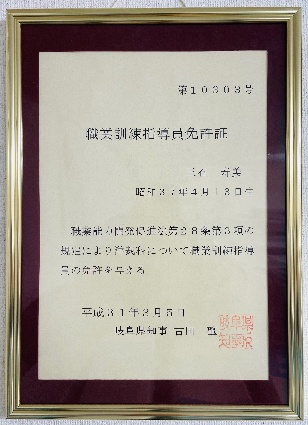 第10303号
職業訓練指導員免許証
寿美
昭和37年4月13日生
職業能力開発促進法第28条第3項の
規定により洋裁科について職業訓練指導
員の免許を与える
平成31年3月5日
岐阜県知事 古田 肇
岐阜県
知事印